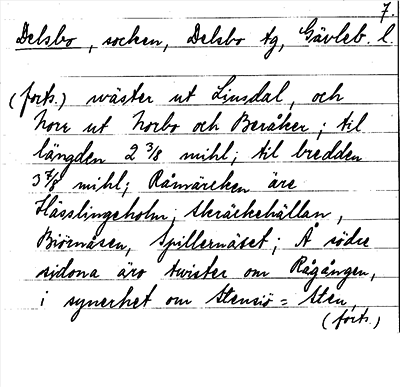 7.
Delsbo, socken, Delsbo tg, Gävleb. l.
(forts.) wäster ut Liusdal, och
Norr ut Norbo och Beråker; til
längden 2 3/8 mihl; til bredden
3 7/8 mihl; Råmärcken äre
Hässlingeholm; Skräckehällan,
Biörnåsen, Spillernäset; Å södre
sidona äro twister om Rågången,
i synerhet om Stensiö = Sten,
(forts.)